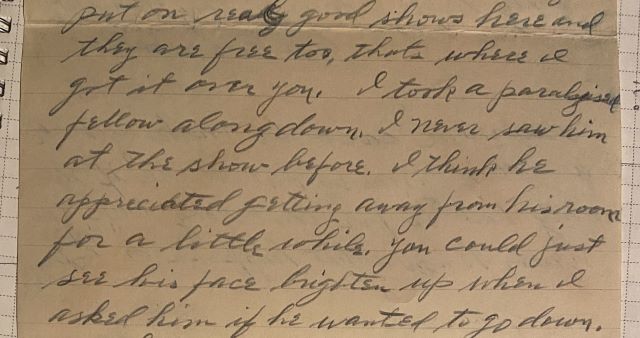 put on real good shows here and
they are free too, thats where I
got it over you. I took a paralyised
fellow along down. I never saw him
at the show before. I think he
appreciated getting away from his room
for a little while. you could just
see his face brighten up when I
asked him if he wanted to go down.